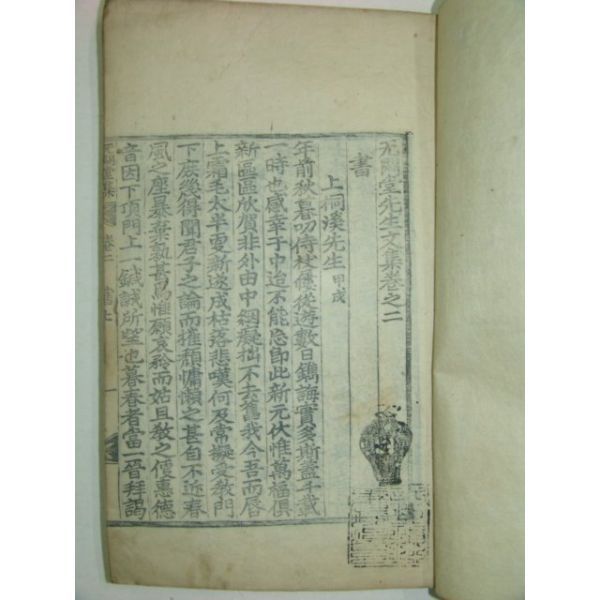 无悶堂先生文集卷之二
書
上桐溪先生 甲戌
年前秋暮叨侍杖屨從遊數日鐫誨實多斯蓋千載
一時也感幸于中迨不能忘即此新元伏惟萬福俱
新區區欣賀非外由中絪癡拙不去舊我今吾而唇
上霜毛太半更新遂成枯落悲嘆何及常擬受教門
下庶幾得聞君子之論而摧頹慵懶之甚自不近春
風之座暴棄孰甚焉惟願哀矜而姑且教之便惠德
音因下頂門上一鍼誠所望也暮春者當一晉拜謁
无悶堂集 卷二 一